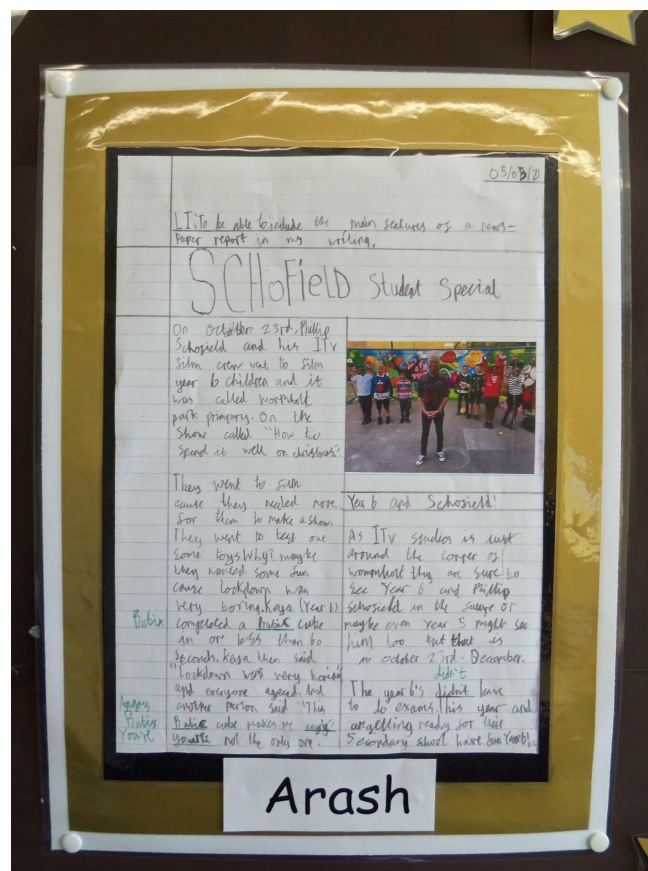 05/03/21
LI: To be able to include the main features of a news-
paper report in my writing.
SCHOFIELD Student Special
On October 23rd, Phillip
Schofield and his ITV
film crew went to film
year 6 children and it
was called
park primary. On the
show called "How to
spend it well on christmas"
They went to film
cause they needed more
for them to make a show.
They went to test out
some toys Why? maybe
they wanted some fun
cause lockdown was
very boring. Kaya (Year 6)
completed a Rubix cube
in or less than 60
seconds. Kaya then said
"Lockdown was very boring"
and everyone agreed. And
another person said "This
cube makes me
not the only one.
Rubix
Angry
Rubix
You're
Year 6 and Schofield!
As ITV studios is just
around the corner of
they are sure to
see Year 6 and Phillip
schofield in the future. Or
maybe even Year 5 might see
him too but that is
in october 23rd - December.
didn't
The year 6's didnt have
to do exams this year and
are getting ready for their
Secondary school have fun Year 6!
Arash